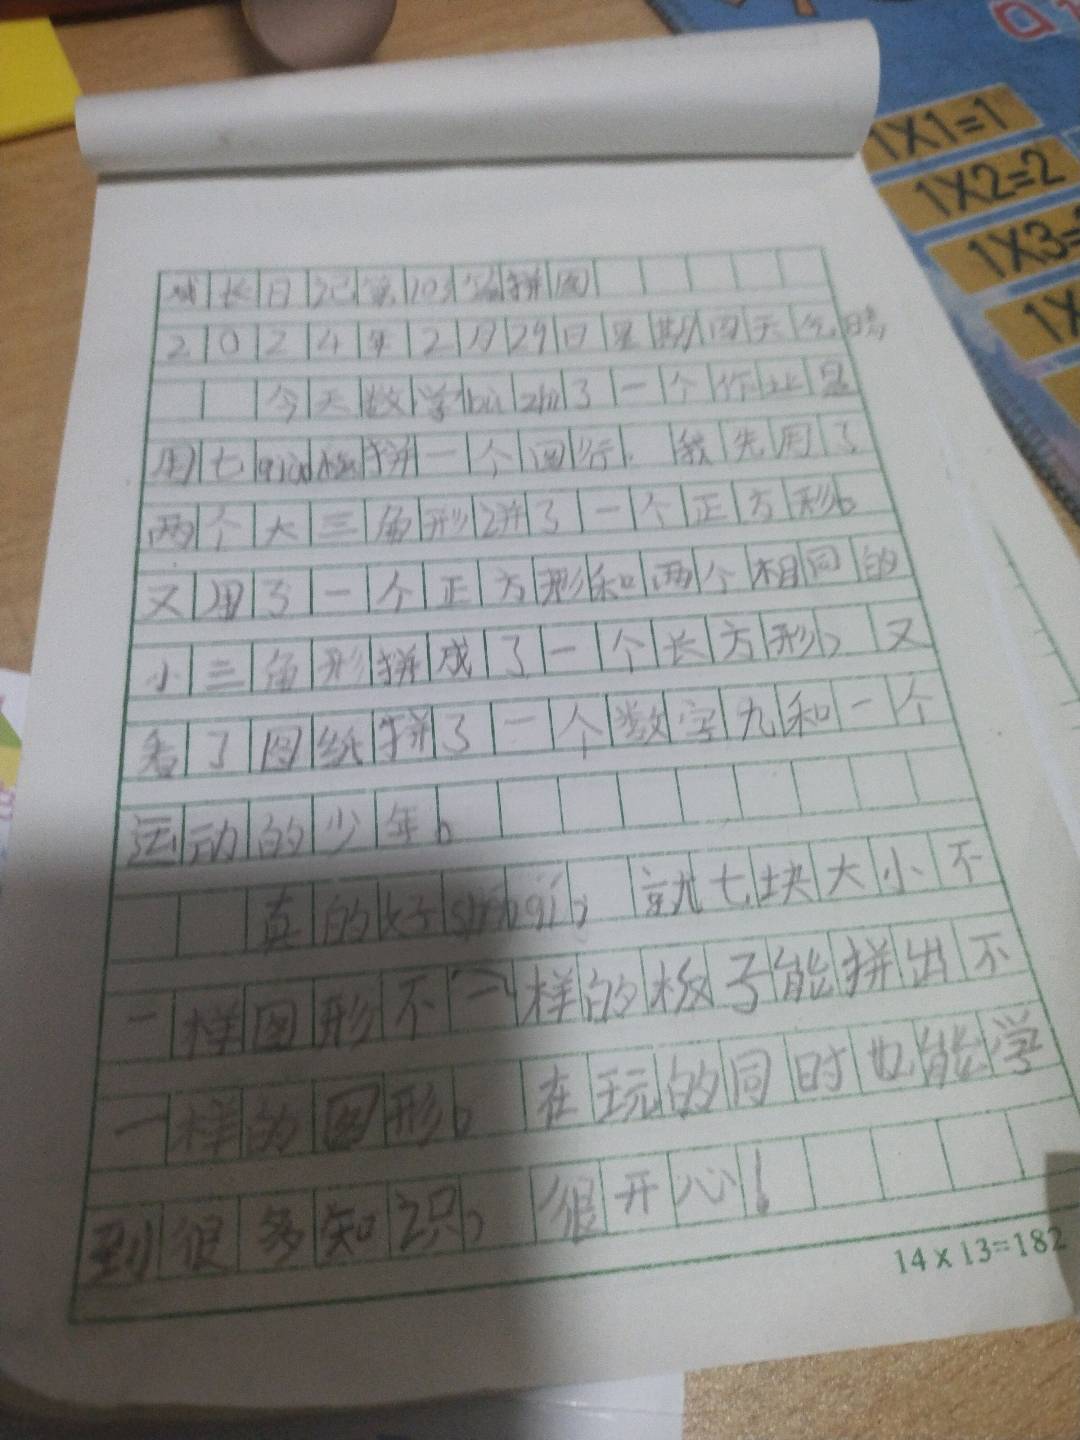 成长日记第103篇拼图
2024年2月29日星期四天气晴
今天数学bù zhì了一个作业是
用七qiǎo板拼一个图行。我先用了
两个大三角形拼了一个正方形。
又用了一个正方形和两个相同的
小三角形拼成了一个长方形,又
看了图纸拼了一个数字九和一个
运动的少年。
真的好shén qí,就七块大小不
一样图形不一样的板子能拼出不
一样的图形。在玩的同时也能学
到很多知识,很开心!
14×13=182
1X1=1
1X2=2
1X3=
1X